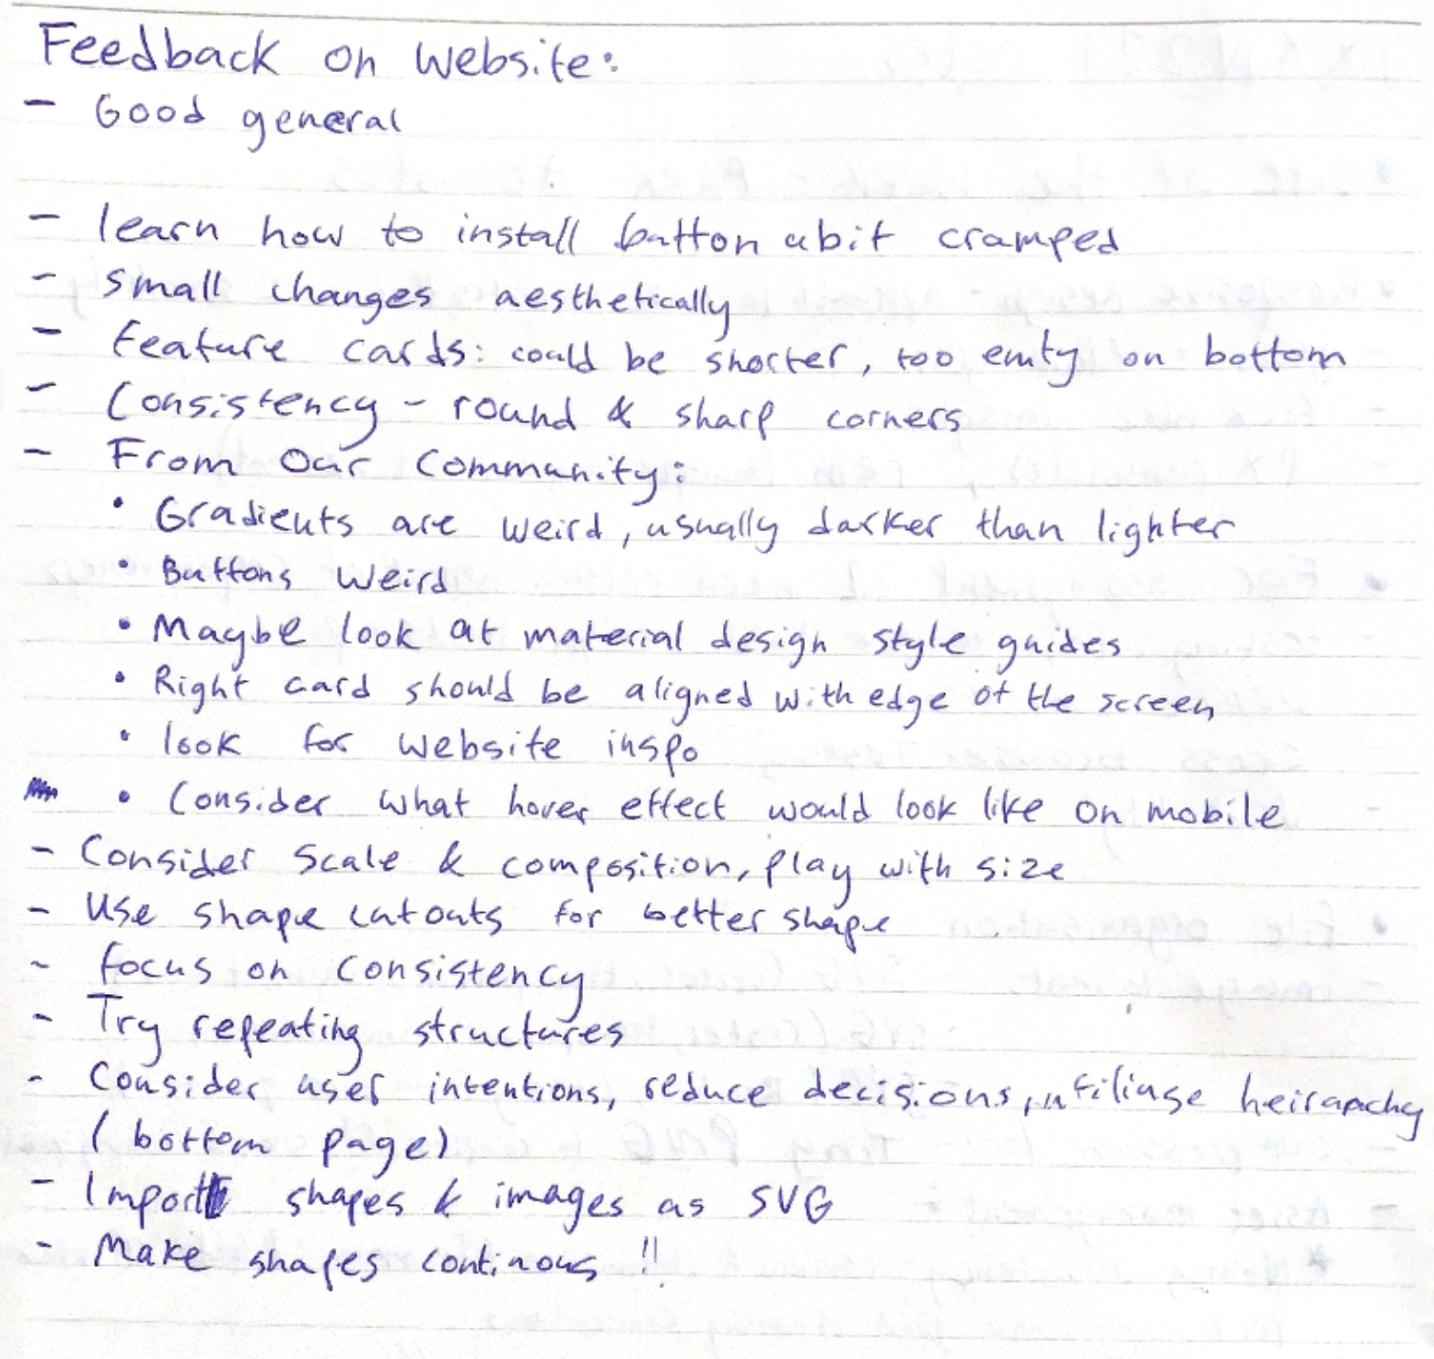 Feedback on website:
- Good general
- learn how to install button abit cramped
- Small changes aesthetically
- Feature cards: could be shorter, too emty on bottom
- Consistency - round & sharp corners
- From Our Community:
• Gradients are weird, usually darker than lighter
• Buttons weird
• Maybe look at material design style guides
• Right card should be aligned with edge of the screen
• look for website inspo
• Consider what hover effect would look like on mobile
- Consider Scale & composition, play with size
- Use shape cutouts for better shape
- focus on consistency
- Try repeating structures
- Consider user intentions, reduce decisions, utiliase heirapachy
(bottom page)
- Import shapes & images as SVG
- Make shapes continous !!